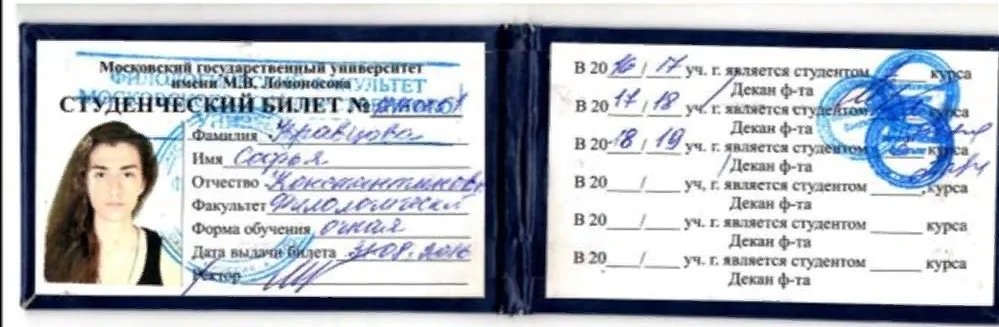 Московский государственный университет
имени М.В. Ломоносова
ФИЛОЛОГИЧЕСКИЙ ФАКУЛЬТЕТ
СТУДЕНЧЕСКИЙ БИЛЕТ №
Фамилия Кравцова
Имя Софья
Отчество Константиновна
Факультет Филологический
Форма обучения очная
Дата выдачи билета 31.08.2016
Ректор
В 2016/17 уч. г. является студентом курса
Декан ф-та
В 2017/18 уч. г. является студентом курса
Декан ф-та
В 2018/19 уч. г. является студентом курса
Декан ф-та
В 20___/___ уч. г. является студентом ______ курса
Декан ф-та
В 20___/___ уч. г. является студентом ______ курса
Декан ф-та
В 20___/___ уч. г. является студентом ______ курса
Декан ф-та